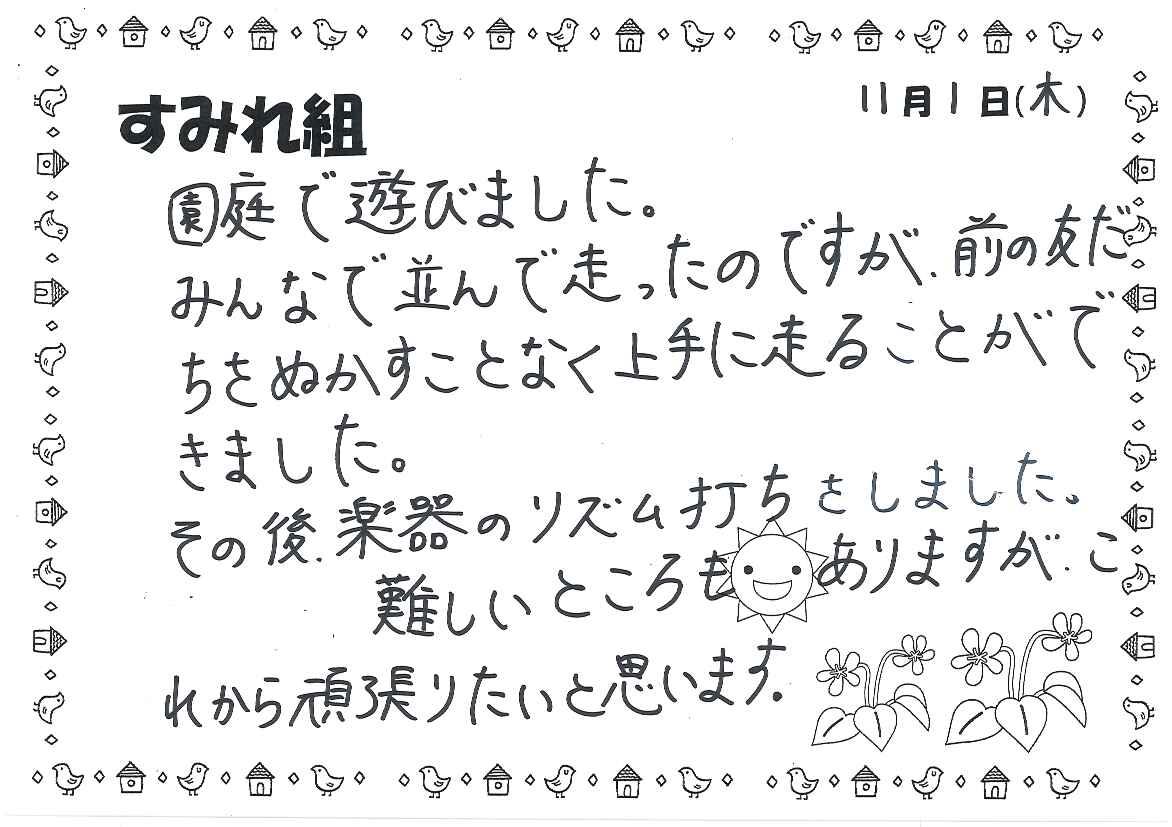 11月1日(木)
すみれ組
園庭で遊びました。
みんなで並んで走ったのですが、前の友だ
ちをぬかすことなく上手に走ることがで
きました。
その後、楽器のリズム打ちをしました。
難しいところもありますが、こ
れから頑張りたいと思います。